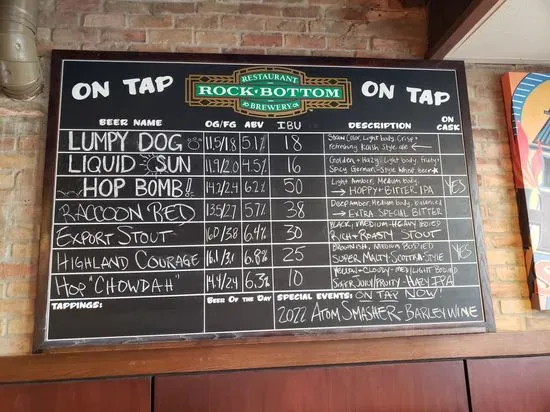 ON TAP
RESTAURANT
ROCK•BOTTOM
BREWERY
ON TAP
BEER NAME OG/FG ABV IBU DESCRIPTION ON CASK
LUMPY DOG 11.5/1.8 5.1% 18 Straw Color, Light body, Crisp + refreshing Kölsh Style ale
LIQUID SUN 11.9/2.0 4.5% 16 Golden + Hazy, Light body, fruity + Spicy German-Style Wheat Beer
HOP BOMB! 14.2/2.4 6.2% 50 Light Amber, Medium body, → HOPPY + BITTER IPA YES
RACCOON RED 13.5/2.7 5.7% 38 Deep Amber, Medium body, balanced → EXTRA SPECIAL BITTER
EXPORT STOUT 16.0/3.8 6.4% 30 BLACK, MEDIUM-HEAVY BODIED RICH + ROASTY STOUT
HIGHLAND COURAGE 16.1/3.1 6.8% 25 BROWNISH, MEDIUM BODIED SUPER MALTY-SCOTTISH-STYLE YES
HOP "CHOWDAH" 14.4/2.4 6.3% 10 YELLOW + CLOUDY - MED/LIGHT BODIED SUPER JUICY/FRUITY - HAZY IPA
TAPPINGS: BEER OF THE DAY SPECIAL EVENTS: ON TAP NOW!
2022 ATOM SMASHER - BARLEYWINE